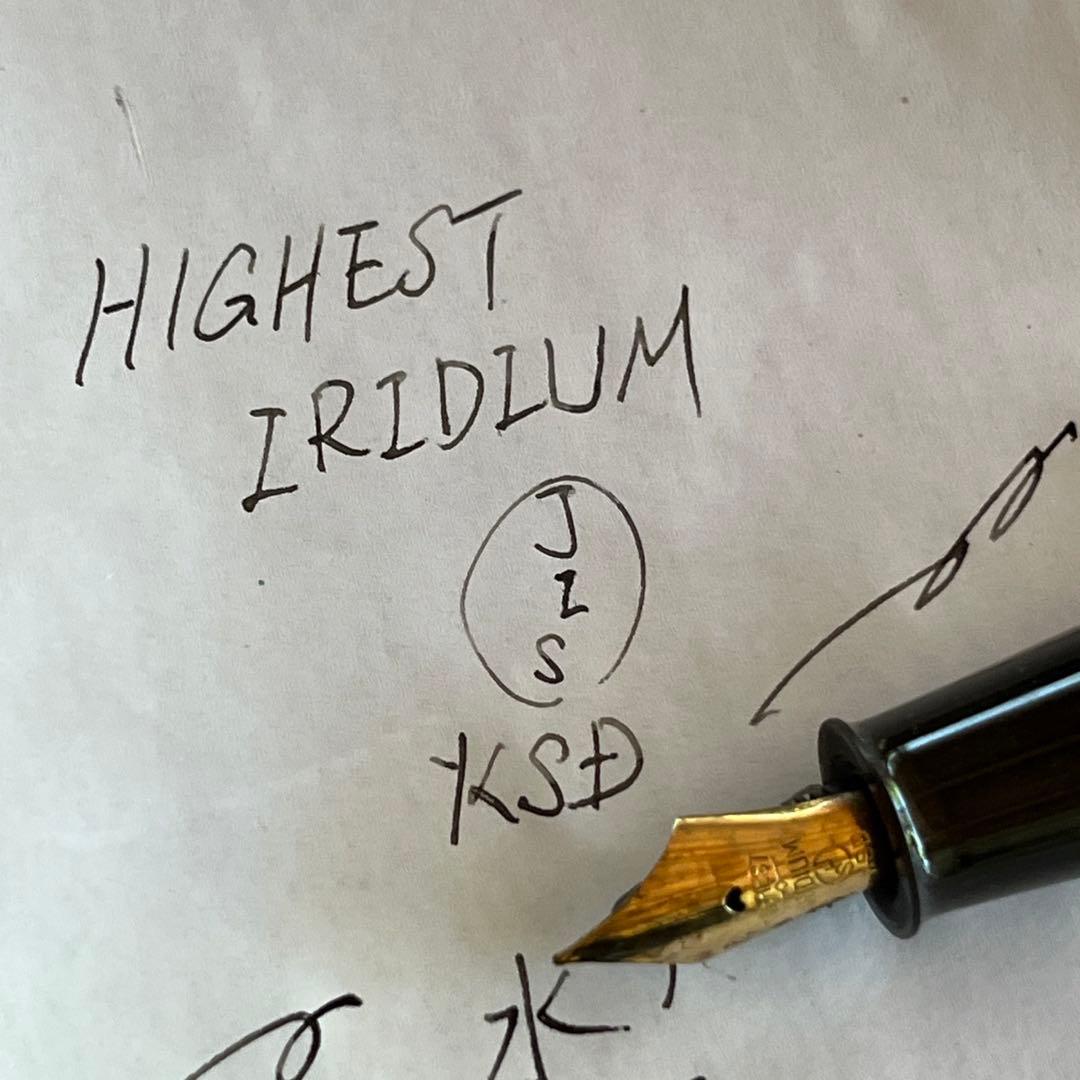 HIGHEST
IRIDIUM
J
I
S
KSD